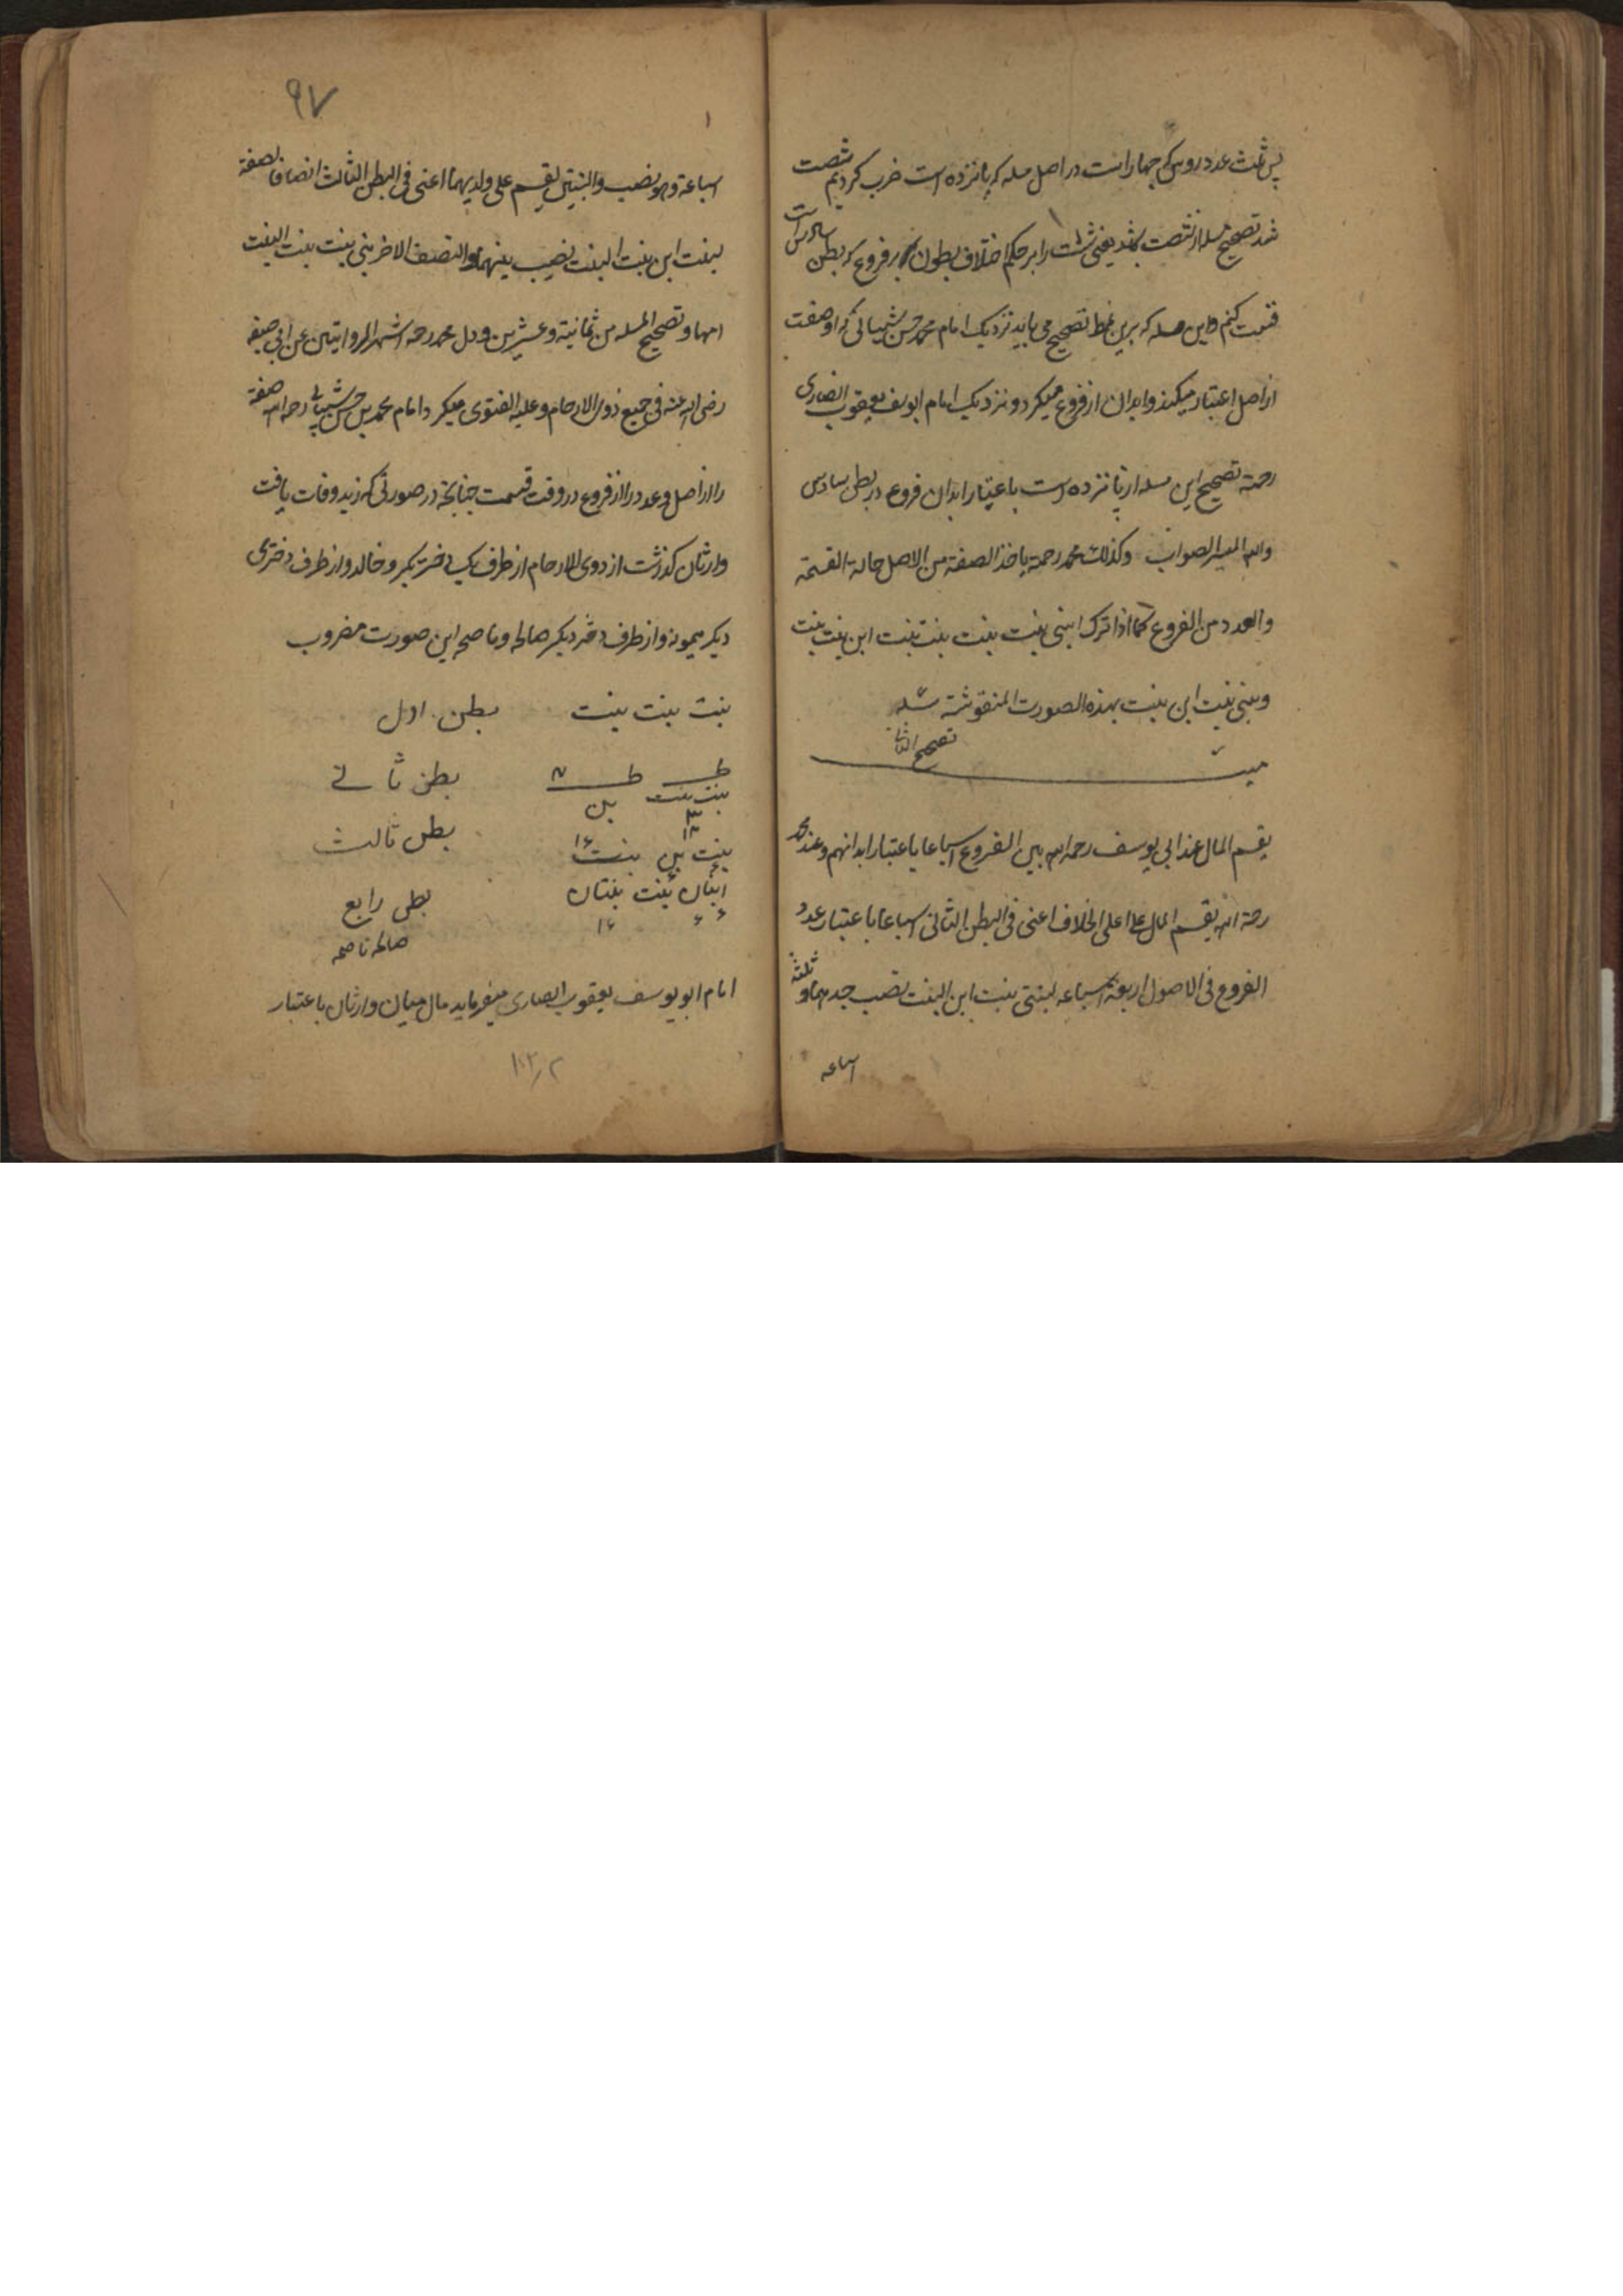 پس ثلث عدد روس که چهار است در اصل مسله که پانزده است ضرب کردیم شصت
شد تصحیح مسله از شصت باشد یعنی ثلث را بر حکم اختلاف بطون بر فروع که بطن سادس است
قسمت کنم و این مسله که برین نمط تصحیح می یابد نزدیک امام محمد حسن شیبانی که او صفت
از اصل اعتبار میکند و ابدان از فروع میکرد و نزدیک امام ابو یوسف یعقوب انصاری
رحمة تصحیح این مسله از پانزده است باعتبار ابدان فروع در بطن سادس
والله الصواب وکذلک محمد رحمة یاخذ الصفة من الاصل حالة القسمة
والعدد من الفروع کما اذا ترک ابنی بنت بنت بنت بنت ابن بنت بنت
وبنتی بنت ابن بنت بهذه الصورت المنقوشة
میت
یقسم المال عند ابی یوسف رحمه الله بین الفروع اسباعا باعتبار ابدانهم وعند محمد
رحمة الله یقسم المال علی اعلی الخلاف اعنی فی البطن الثانی اسباعا باعتبار عدد
الفروع فی الاصول اربعة اسباعه لبنتی بنت ابن البنت نصیب جدهما و ثلثة
اسباعه
۹۷
اسباعة وهو نصیب البنتین یقسم علی ولدیهما اعنی فی البطن الثالث انصافا نصفه
لبنت ابن بنت البنت نصیب ابیها والنصف الاخر بنی بنت بنت البنت
امها وتصحیح المسله من ثمانیة وعشرین وقول محمد رحمه اشهر الروایتین عن ابی حنیفه
رضی الله عنه فی جمیع ذوی الارحام وعلیه الفتوی میکر و امام محمد بن حسن شیبانی رحمه الله صفة
را از اصل و عدد را از فروع در وقت قسمت چنانچه در صورتی که زید وفات یافت
وارثان کذشت از ذوی الارحام از طرف یک دختر بکر و خالد و از طرف دختری
دیکر میمونه و از طرف دختر دیکر صالحه و ناصحه این صورت مضروب
بنت بنت بنت بطن اول
بنت بنت بن بطن ثانی
بنت بن بنت بطن ثالث
ابنان بنت بنتان بطن رابع
صالحه ناصحه
امام ابو یوسف یعقوب انصاری میفرماید مال میان وارثان باعتبار